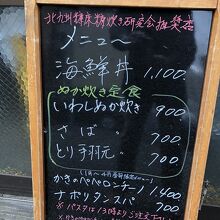 北九州糠床糠炊き研究会推奨店
メニュー
海鮮丼 1,100.
ぬか炊き定食
いわしぬか炊き 900
さば 〃 700
とり手羽元 〃 700
かきのペペロンチーノ 1,400
ナポリタンスパ 700
※パスタは13時よりご注文